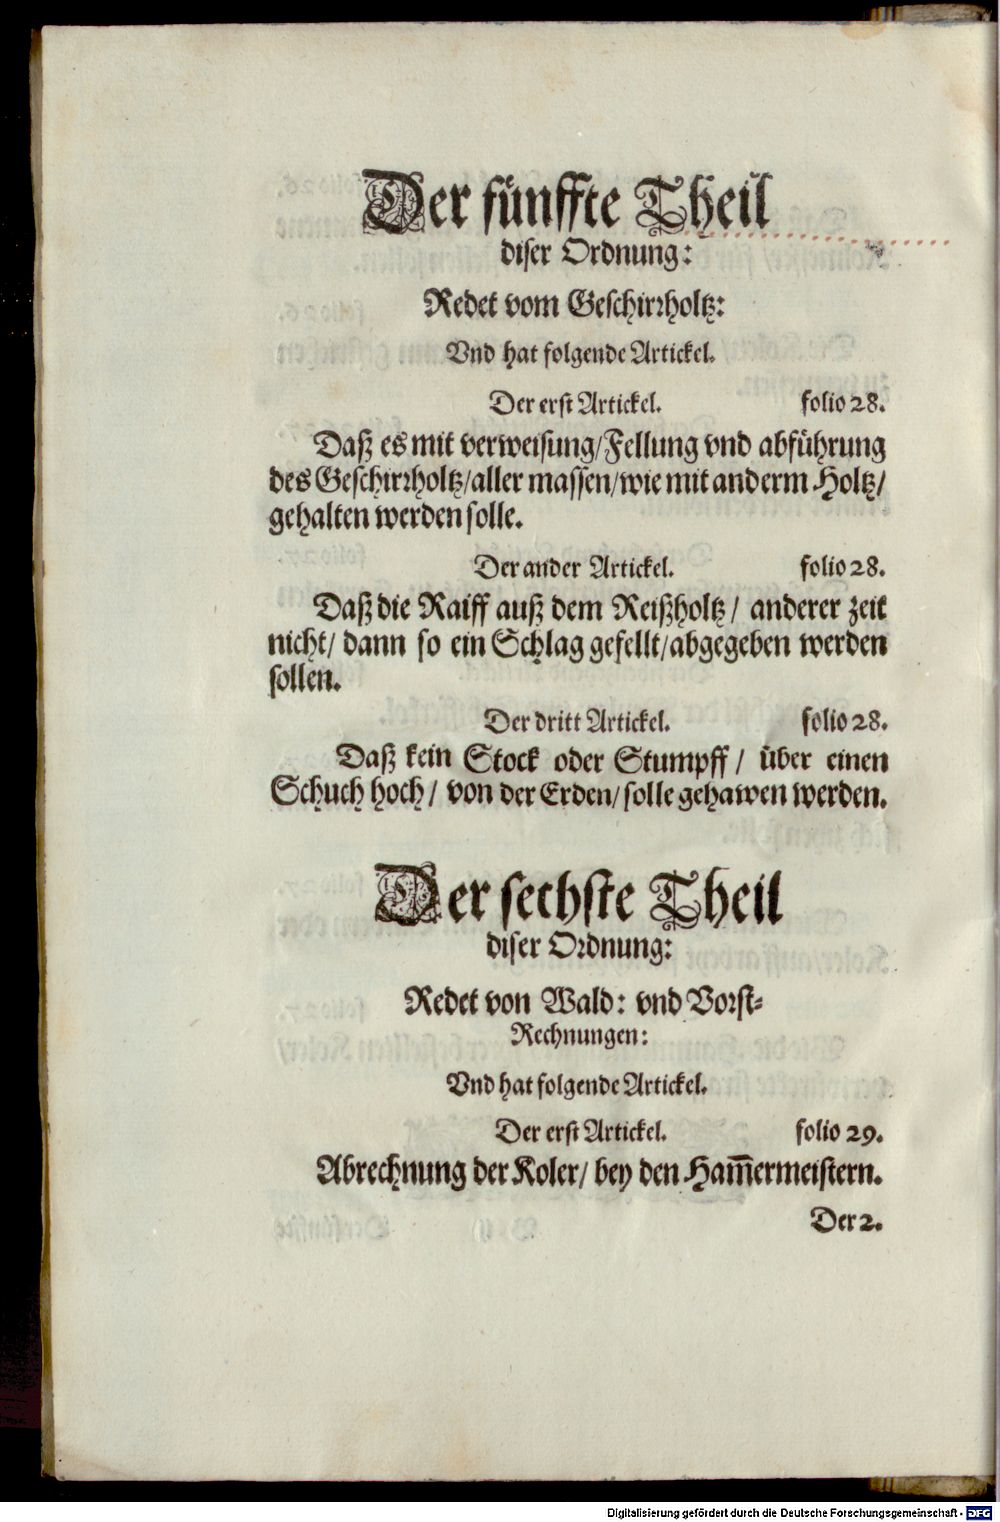 Der fünffte Theil
diser Ordnung:
Redet vom Geschirrholtz:
Vnd hat folgende Artickel.
Der erst Artickel. folio 28.
Daß es mit verweisung/Fellung vnd abführung
des Geschirrholtz/aller massen/wie mit anderm Holtz/
gehalten werden solle.
Der ander Artickel. folio 28.
Daß die Raiff auß dem Reißholtz/ anderer zeit
nicht/ dann so ein Schlag gefellt/abgegeben werden
sollen.
Der dritt Artickel. folio 28.
Daß kein Stock oder Stumpff/ über einen
Schuch hoch/ von der Erden/ solle gehawen werden.
Der sechste Theil
diser Ordnung:
Redet von Wald: vnd Vorst-
Rechnungen:
Vnd hat folgende Artickel.
Der erst Artickel. folio 29.
Abrechnung der Koler/ bey den Ham̅ermeistern.
Der 2.
Digitalisierung gefördert durch die Deutsche Forschungsgemeinschaft - DFG